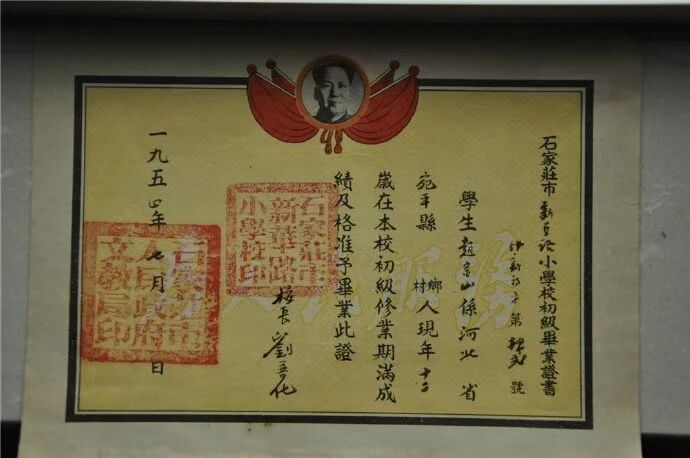 石家莊市新華路小學校初級畢業證書
第 號
學生趙寶山係河北省
宛平縣 鄉村人現年十二
歲在本校初級修業期滿成
績及格准予畢業此證
校長劉
一九五四年七月 日
石家莊市
新華路
小學校印
石家莊市
人民政府
文教局印